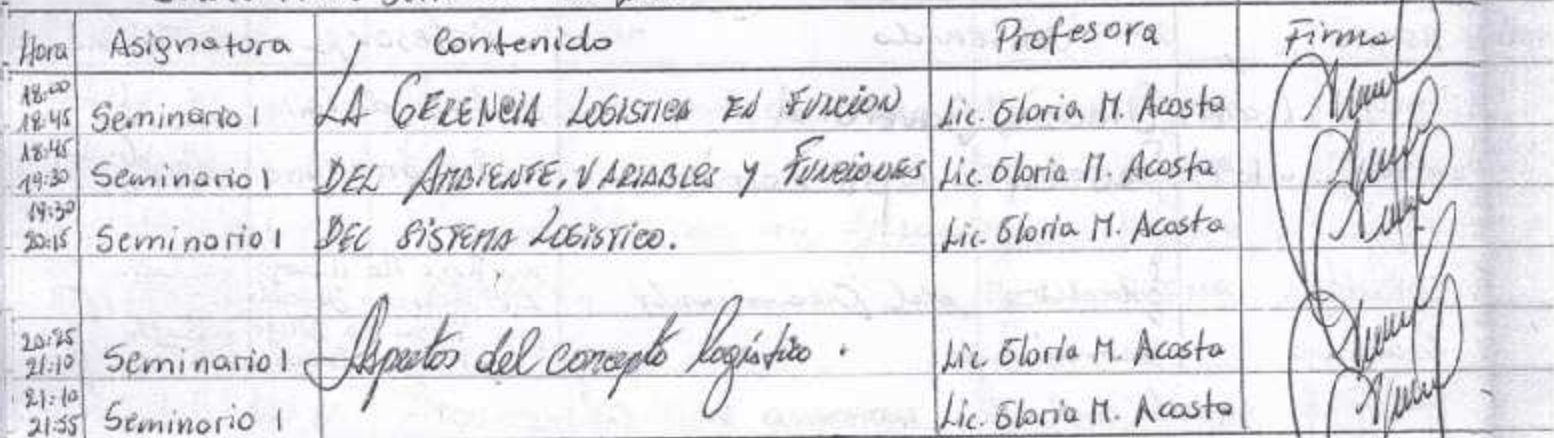 Hora Asignatura Contenido Profesora Firma
18:00
18:45 Seminario 1 LA GERENCIA LOGISTICA EN FUNCION Lic. Gloria M. Acosta
18:45
19:30 Seminario 1 DEL AMBIENTE, VARIABLES Y FUNCIONES Lic. Gloria M. Acosta
19:30
20:15 Seminario 1 DEL SISTEMA LOGISTICO. Lic. Gloria M. Acosta
20:25
21:10 Seminario 1 Aspectos del concepto logístico. Lic. Gloria M. Acosta
21:10
21:55 Seminario 1 Lic. Gloria M. Acosta